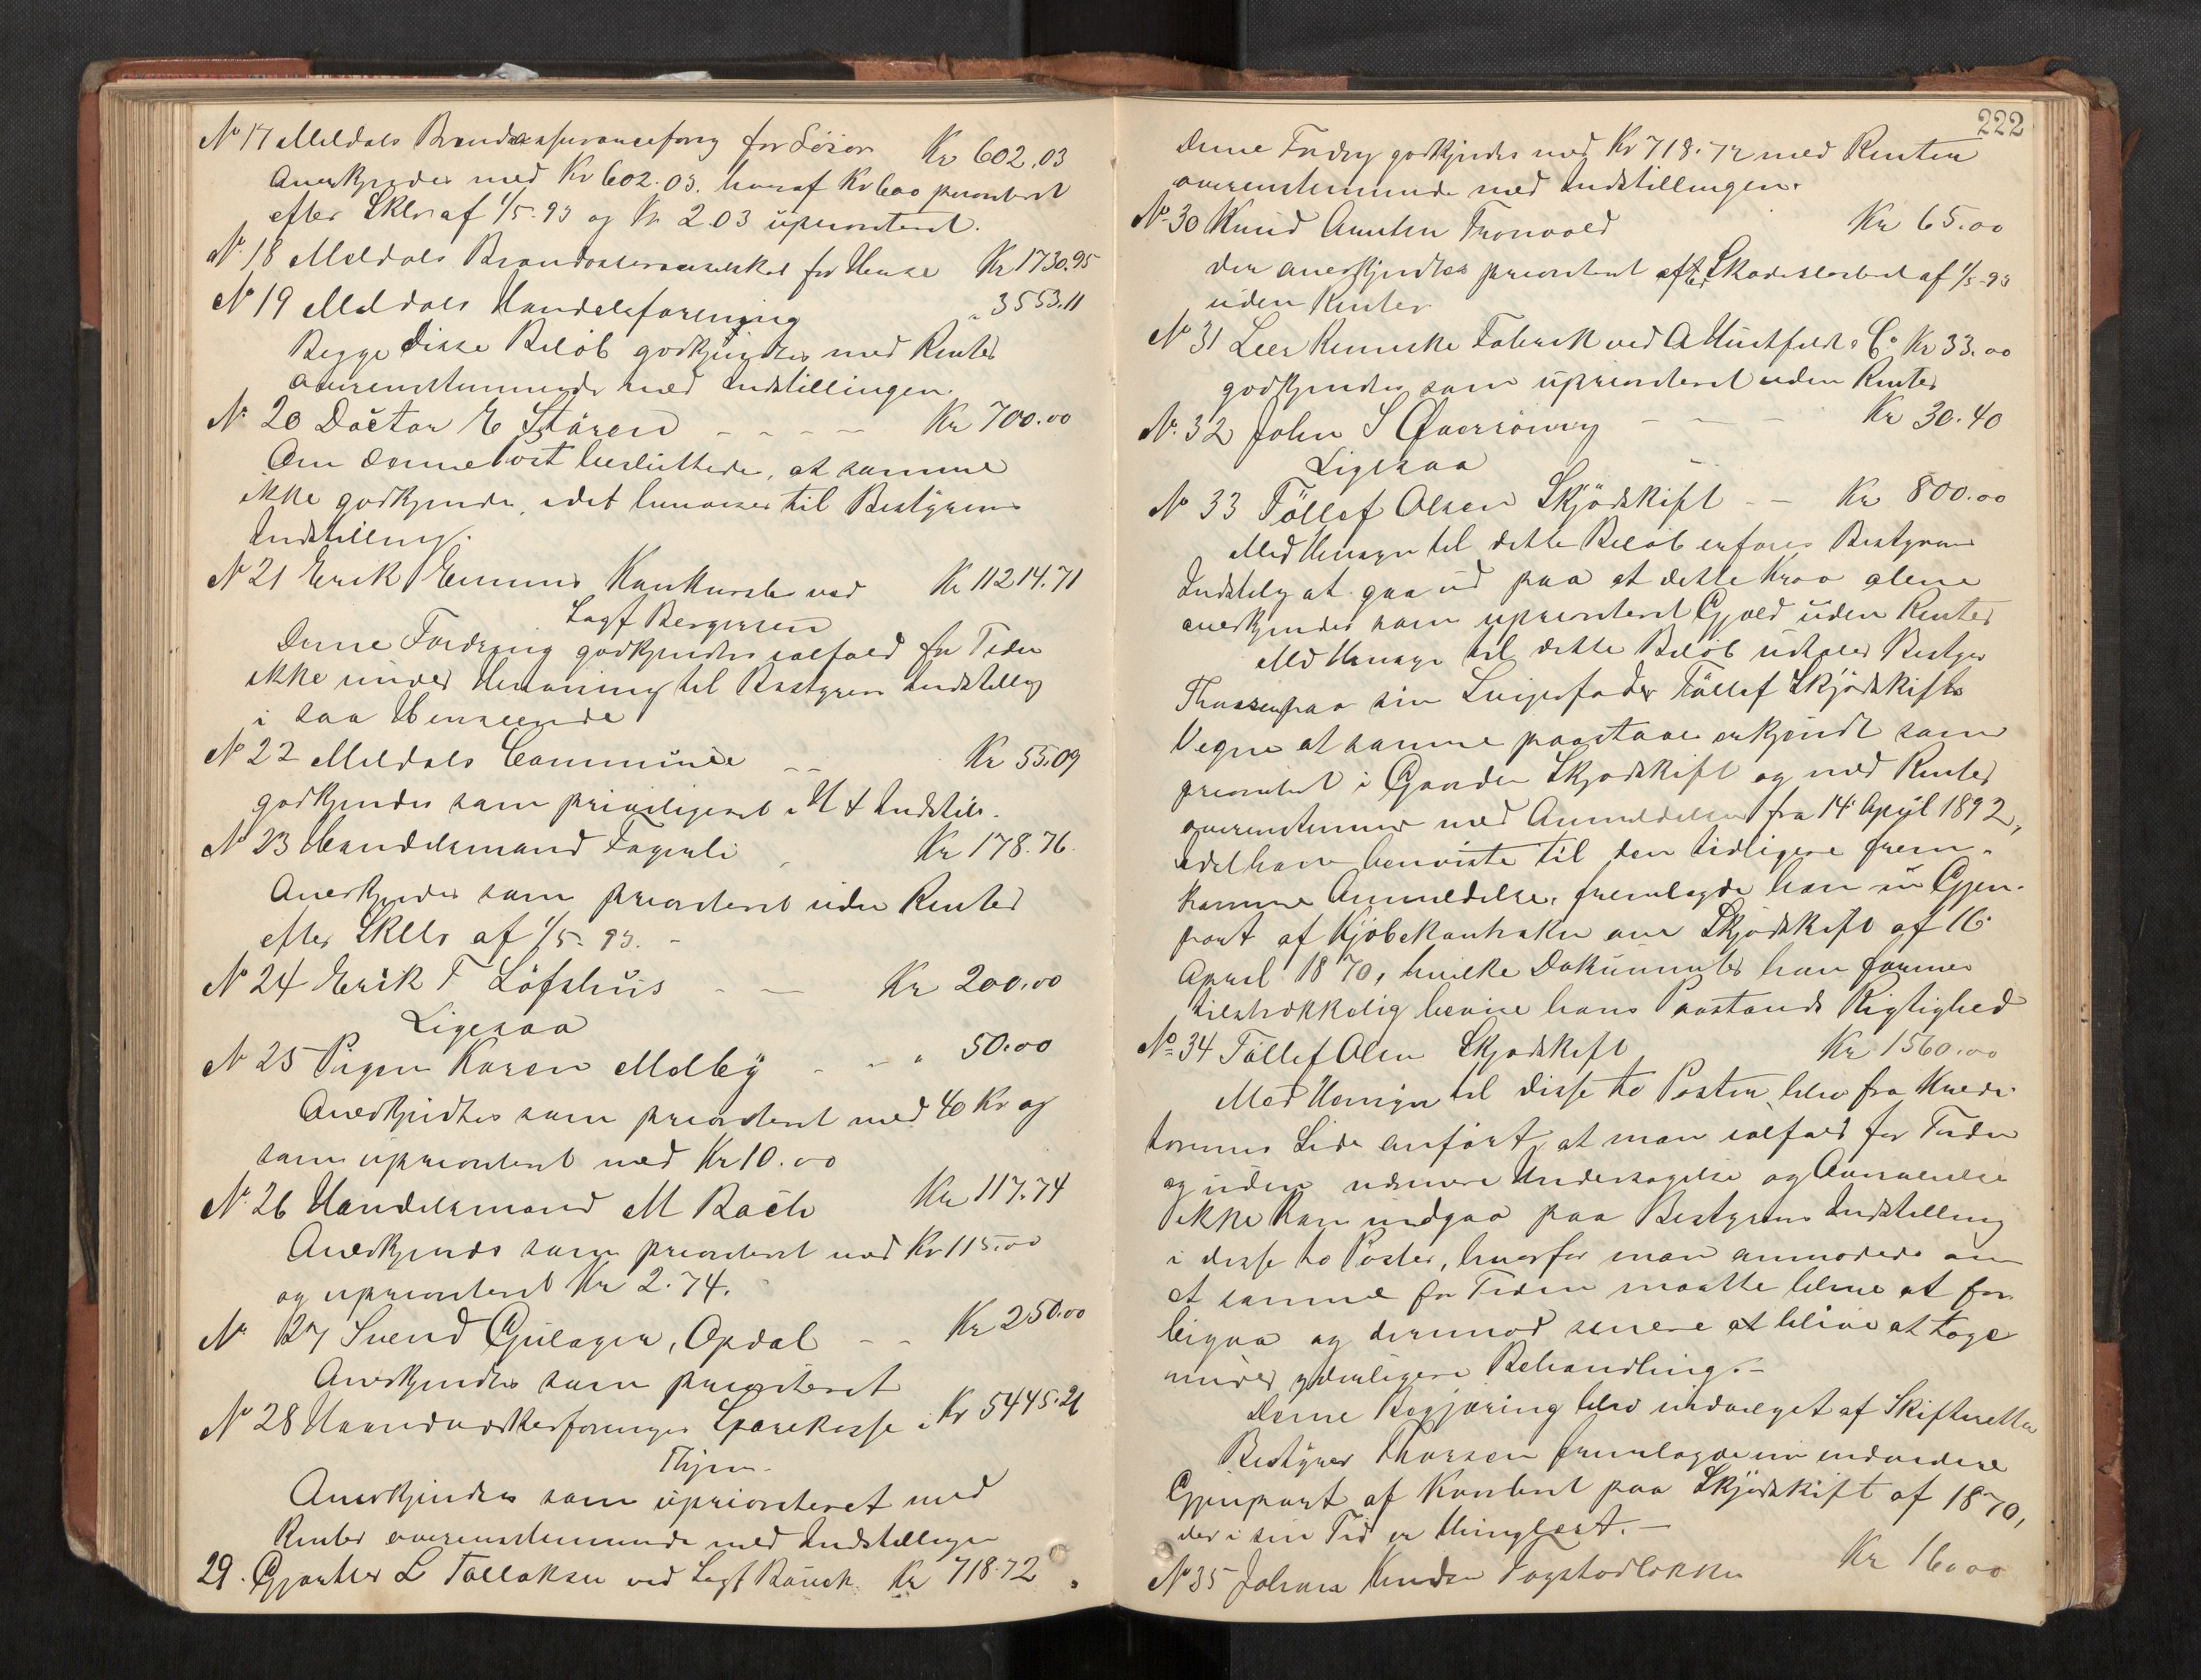 No 17 Meldals Brandassuranceforg for Löser Kr 602.03
Anerkjendes med Kr 602.03. hvoraf Kr 600 prioriteret
efter Skbr af 1/5-93 og Kr 2.03 uprioriteret.
No 18 Meldals Brandassuranceselskab for Huuse Kr 1730.95
No 19 Meldals Handelsforening " 3553.11
Begge disse Beløb godkjendtes med Renter
overenstemmende med Indstillingen.
No 20 Doctor E Stören - - - - Kr 700.00
Om denne Post besluttedes, at samme
ikke godkjendes, idet henvises til Bestyrerens
Indstilling.
No 21 Erik Kankursbo ved Kr 11214.71
Sagf Bergersen
Denne Fordring godkjendtes ialfald for Tiden
ikke under Henvisning til Bestyrerens Indstilling
i saa Henseende
No 22 Meldals Commune - - Kr 55.09
godkjendes som priviligeret i H t Indstill.
No 23 Handelsmand Fagerli Kr 178.76
Anerkjendes som prioriteret uden Renter
efter Skbr af 1/5-93. -
No 24 Erik T Löfshus - - Kr 200.00
Ligesaa
No 25 Pigen Karen Melby - - " 50.00
Anerkjendtes som prioriteret med 40 Kr og
som uprioriteret med Kr 10.00
No 26 Handelsmand M Bach Kr 117.74
Anerkjends som prioriteret med Kr 115.00
og uprioriteret Kr 2.74.
No 27 Svend Gulager, Opdal - - Kr 250.00
Anerkjendtes som prioriteret
No 28 Haandværkerforeninges Sparekasse i Kr 5445.21
Thjem.
Anerkjendtes som uprioriteret med
Renter overenstemmende med Indstillingen
29. Gjørtler L Tallaksen ved Sagf Bauck Kr 718.72
222
Denne Fordrg godkjendes med Kr 718.72 med Renter
overenstemmende med Indstillingen.
No 30 Knud Amundsen Kr 65.00
der anerkjendtes prioriteret efter Skadesløsbrev af 1/5-93
uden Renter
No 31 Leer Kemiske Fabrik ved A Huitfeldt & Co Kr 33.00
godkjendes som uprioriteret uden Renter
No 32 John S - - - Kr 30.40
Ligesaa
No 33 Tøllef Olsen Skjødskift - - Kr 800.00
Med Hensyn til dette Beløb anføres Bestyrerens
Indstillg at gaa ud paa at dette Krav alene
anerkjendes som uprioriteret Gjæld uden Renter
Med Hensyn til dette Beløb udtaler Bestyrer
Thorsen paa sin Svigerfader Tøllef Skjødskifts
Vegne at samme paastaaes erkjendt som
prioriteret i Gaarden Skjødskift og med Renter
overenstemmende med Anmeldelsen fra 14 April 1892,
Idet han henviste til den tidligere frem-
komne Anmeldelse, fremlagde han nu Gjen-
part af Kjøbekontrakten om Skjødskift af 16
April 1870, hvilke Dokumenter han formener
tilstrækkelig bevise hans Paastands Rigtighed
No 34 Tøllef Olsen Skjødskift Kr 1560.00
Med Hensyn til disse to Poster, blev fra Kredi-
torernes Side anført, at man ialfald for Tiden
og uden nærmere Undersøgelse og Overveielse
ikke kan indgaa paa Bestyrerens Indstilling
i disse to Poster, hvorfor man anmodede om
at samme for Tiden maatte blive at for-
bigaa og derimod senere at blive at tage
under ydderligere Behandling. -
Denne Begjæring blev imødegaaet af Skifteretten
Bestyrer Thorsen fremlagde nu endvidere
Gjenpart af Kontrakt paa Skjødskift af 1870,
der i sin Tid er thinglæst. -
No 35 Johan Knudsen Kr 16.00